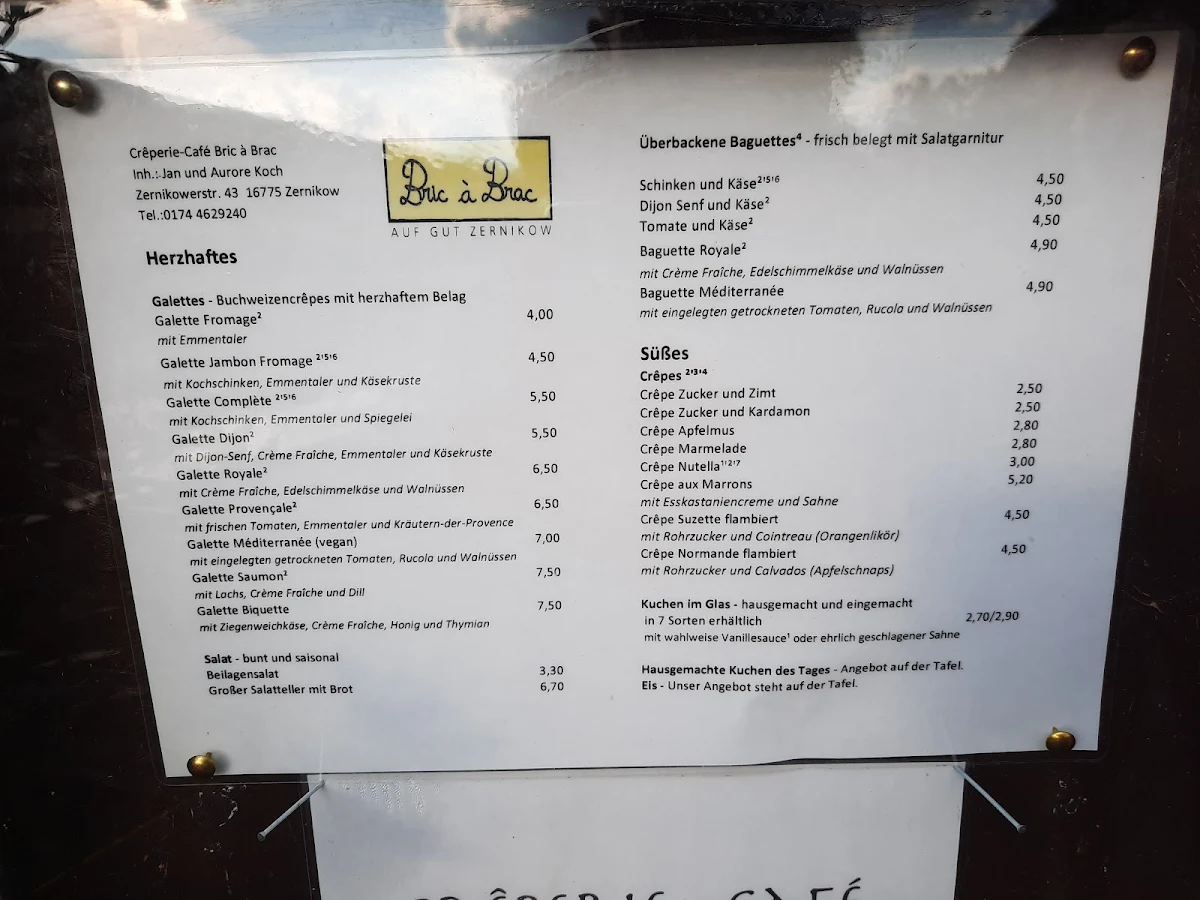 Crêperie-Café Bric à Brac
Inh.: Jan und Aurore Koch
Zernikowerstr. 43 16775 Zernikow
Tel.:0174 4629240
Bric à Brac
AUF GUT ZERNIKOW
Herzhaftes
Galettes - Buchweizencrêpes mit herzhaftem Belag
Galette Fromage² 4,00
mit Emmentaler
Galette Jambon Fromage ²'⁵'⁶ 4,50
mit Kochschinken, Emmentaler und Käsekruste
Galette Complète ²'⁵'⁶ 5,50
mit Kochschinken, Emmentaler und Spiegelei
Galette Dijon² 5,50
mit Dijon-Senf, Crème Fraîche, Emmentaler und Käsekruste
Galette Royale² 6,50
mit Crème Fraîche, Edelschimmelkäse und Walnüssen
Galette Provençale² 6,50
mit frischen Tomaten, Emmentaler und Kräutern-der-Provence
Galette Méditerranée (vegan) 7,00
mit eingelegten getrockneten Tomaten, Rucola und Walnüssen
Galette Saumon² 7,50
mit Lachs, Crème Fraîche und Dill
Galette Biquette 7,50
mit Ziegenweichkäse, Crème Fraîche, Honig und Thymian
Salat - bunt und saisonal
Beilagensalat 3,30
Großer Salatteller mit Brot 6,70
Überbackene Baguettes⁴ - frisch belegt mit Salatgarnitur
Schinken und Käse²'⁵'⁶ 4,50
Dijon Senf und Käse² 4,50
Tomate und Käse² 4,50
Baguette Royale² 4,90
mit Crème Fraîche, Edelschimmelkäse und Walnüssen
Baguette Méditerranée 4,90
mit eingelegten getrockneten Tomaten, Rucola und Walnüssen
Süßes
Crêpes ²'³'⁴
Crêpe Zucker und Zimt 2,50
Crêpe Zucker und Kardamon 2,50
Crêpe Apfelmus 2,80
Crêpe Marmelade 2,80
Crêpe Nutella¹'²'⁷ 3,00
Crêpe aux Marrons 5,20
mit Esskastaniencreme und Sahne
Crêpe Suzette flambiert 4,50
mit Rohrzucker und Cointreau (Orangenlikör)
Crêpe Normande flambiert 4,50
mit Rohrzucker und Calvados (Apfelschnaps)
Kuchen im Glas - hausgemacht und eingemacht
in 7 Sorten erhältlich 2,70/2,90
mit wahlweise Vanillesauce¹ oder ehrlich geschlagener Sahne
Hausgemachte Kuchen des Tages - Angebot auf der Tafel.
Eis - Unser Angebot steht auf der Tafel.